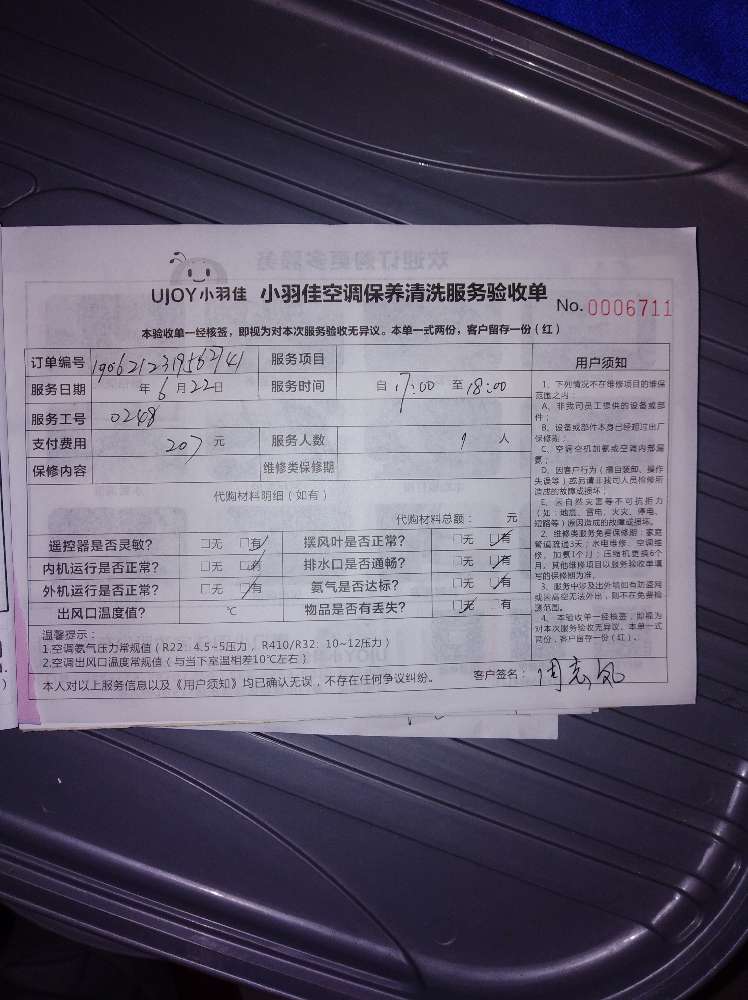 UJOY小羽佳 小羽佳空调保养清洗服务验收单 No.0006711
本验收单一经核签，即视为对本次服务验收无异议。本单一式两份，客户留存一份（红）
订单编号 服务项目
服务日期 年6月22日 服务时间 自17:00 至18:00
服务工号 0248
支付费用 207元 服务人数 1人
保修内容 维修类保修期
代购材料明细（如有）
代购材料总额： 元
遥控器是否灵敏? 口无 口有 摆风叶是否正常? 口无 口有
内机运行是否正常? 口无 口有 排水口是否通畅? 口无 口有
外机运行是否正常? 口无 口有 氨气是否达标? 口无 口有
出风口温度值? ℃ 物品是否有丢失? 口无 有
温馨提示：
1.空调氨气压力常规值（R22：4.5~5压力，R410/R32：10~12压力）
2.空调出风口温度常规值（与当下室温相差10℃左右）
本人对以上服务信息以及《用户须知》均已确认无误，不存在任何争议纠纷。 客户签名：
用户须知
1、下列情况不在维修项目的维保
范围之内：
A、非我司员工提供的设备或部
件；
B、设备或部件本身已经超过出厂
保修期；
C、空调空机加氨或空调内部漏
氨；
D、因客户行为（擅自装卸、操作
失误等）或另请非我司人员检修所
造成的故障或损坏；
E、因自然灾害等不可抗拒力
（如：地震、雷电、火灾、停电、
短路等）原因造成的故障或损坏。
2、维修类服务免费保修期：家庭
管道疏通3天；水电维修、空调维
修、加氨1个月；压缩机更换6个
月。其他维修项目以服务验收单填
写的保修期为准。
3、服务中涉及出外墙如有防盗网
或因高空无法外出，则不在免费检
测范围。
4、本验收单一经核签，即视为
对本次服务验收无异议。本单一式
两份，客户留存一份（红）。